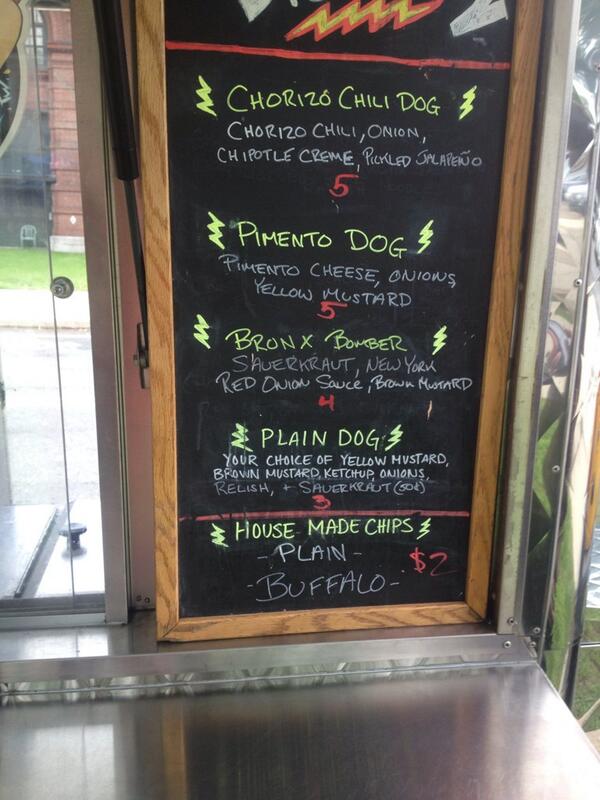 CHORIZO CHILI DOG
CHORIZO CHILI, ONION,
CHIPOTLE CREME, PICKLED JALAPEÑO
5
PIMENTO DOG
PIMENTO CHEESE, ONIONS,
YELLOW MUSTARD
5
BRONX BOMBER
SAUERKRAUT, NEW YORK
RED ONION SAUCE, BROWN MUSTARD
4
PLAIN DOG
YOUR CHOICE OF YELLOW MUSTARD,
BROWN MUSTARD, KETCHUP, ONIONS,
RELISH, + SAUERKRAUT (50¢)
3
HOUSE MADE CHIPS
- PLAIN -
$2
- BUFFALO -